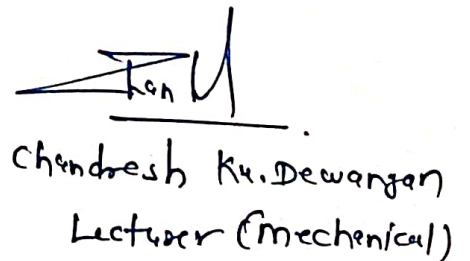 Chandresh Ku. Dewangan
Lecturer (Mechanical)